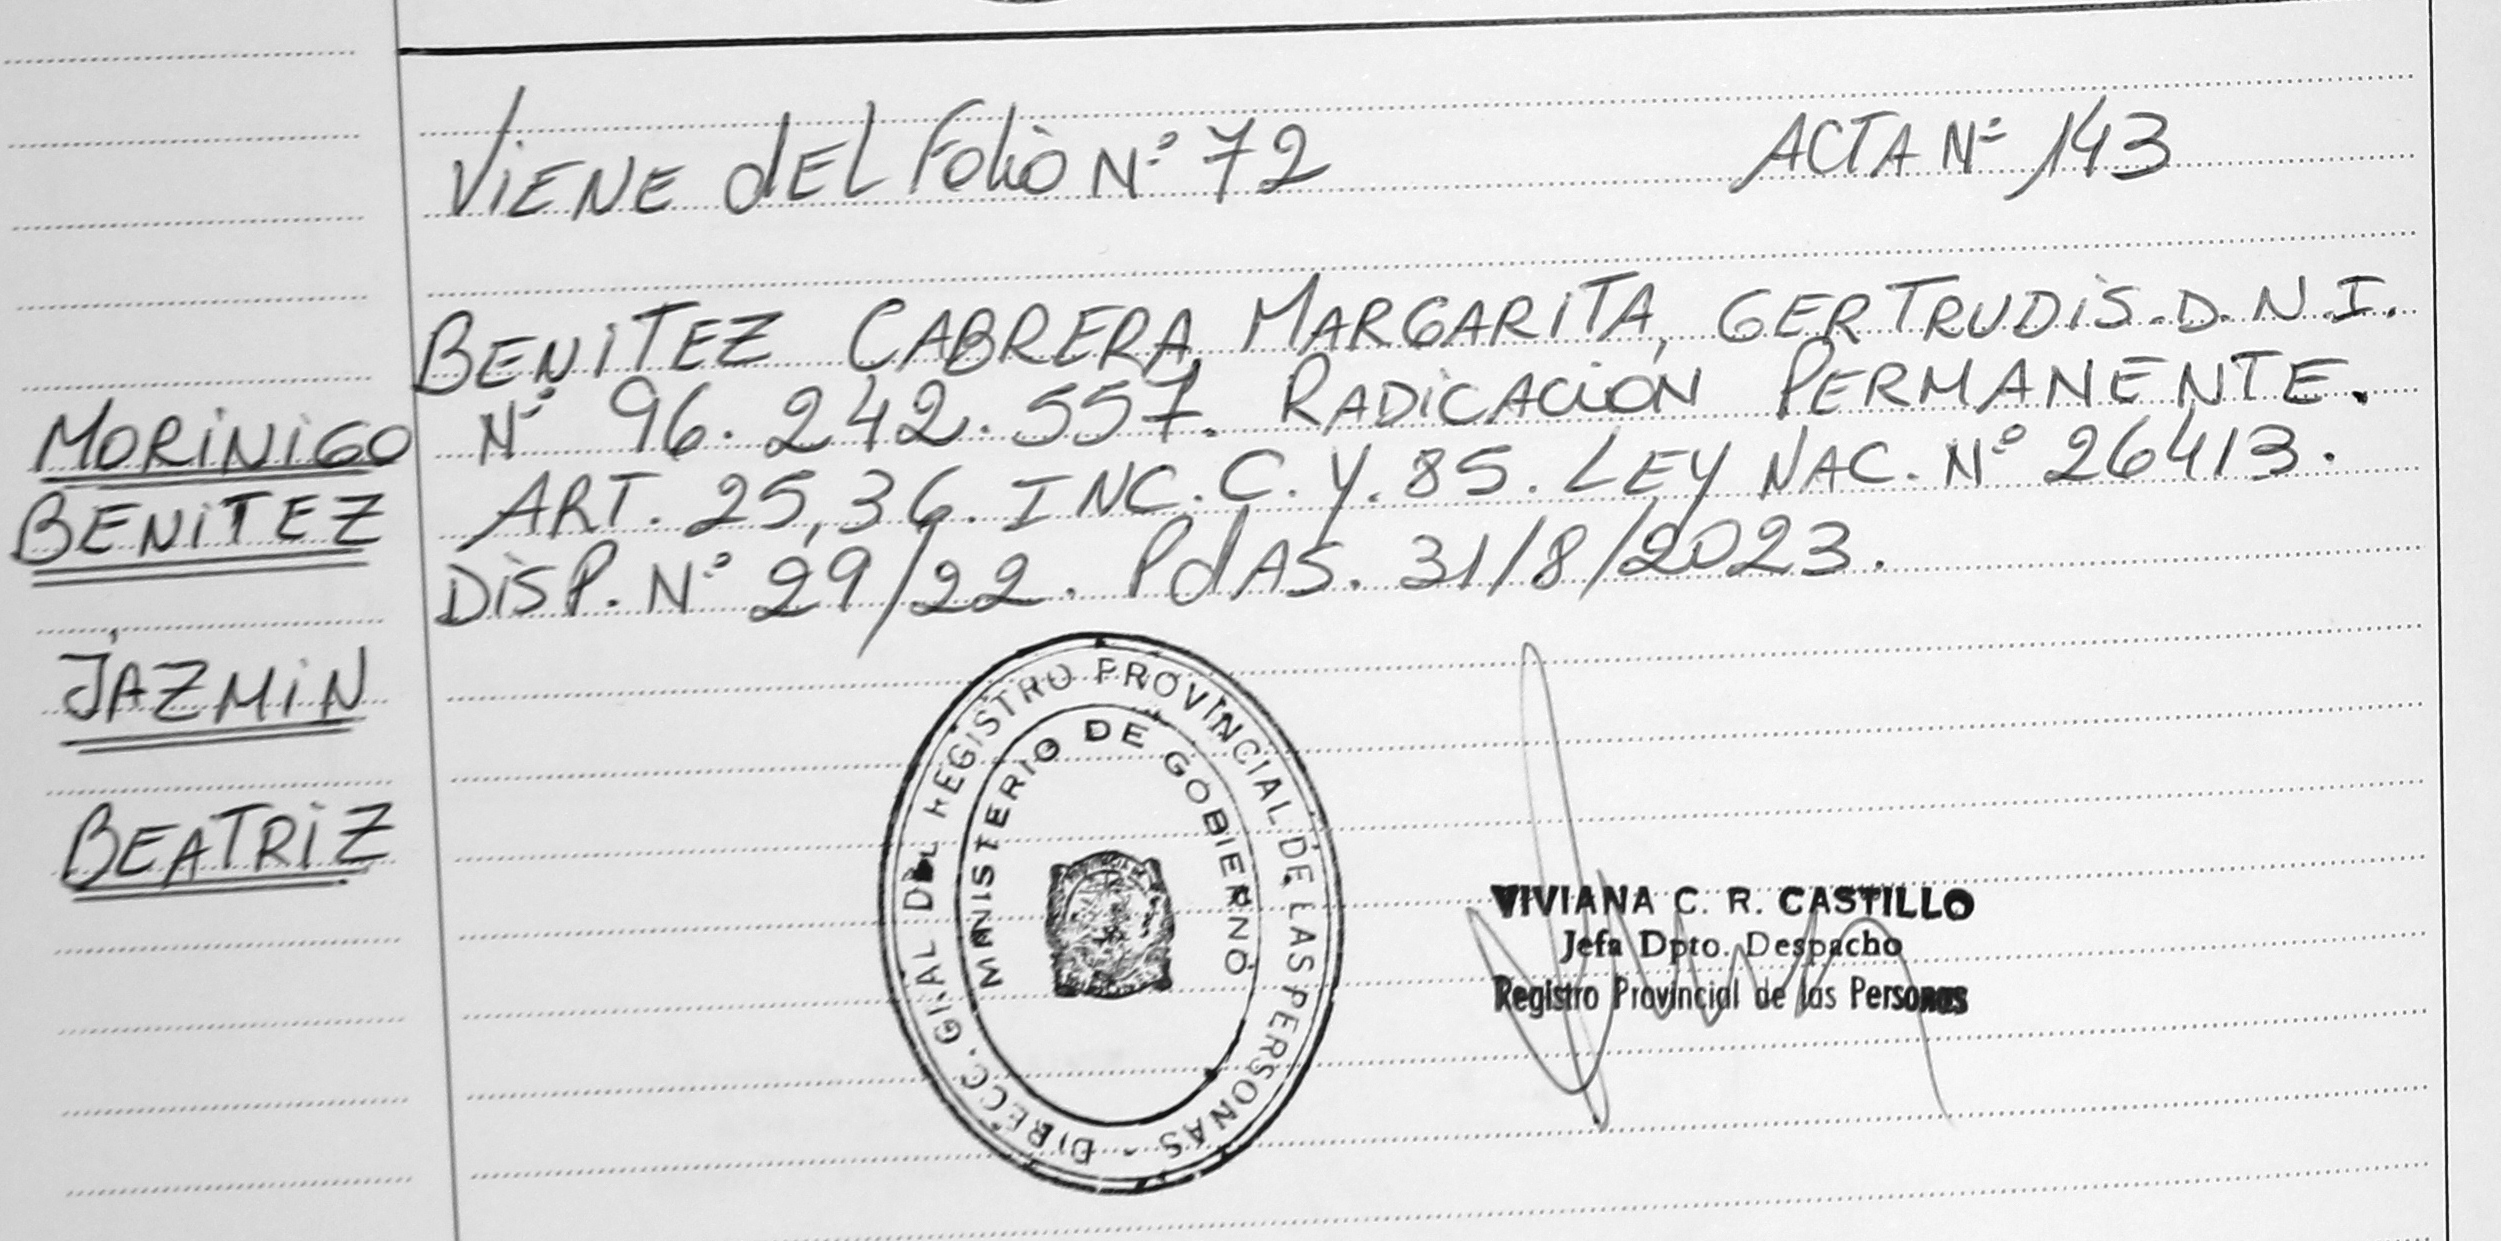 ViENE dEL Folio Nº 72
ACTA Nº 143
BENiTEZ CABRERA MARGARiTA, GERTRUDiS. D.N.I.
Nº 96.242.557. RADiCACiÓN PERMANENTE.
ART. 25, 36. INC. C. Y. 85. LEY NAC. Nº 26413.
DiSP. Nº 29/22. PdAS. 31/8/2023.
MORiNiGO
BENiTEZ
JAZMiN
BEATRiZ
DIRECC. GRAL DEL REGISTRO PROVINCIAL DE LAS PERSONAS -
MINISTERIO DE GOBIERNO
VIVIANA C. R. CASTILLO
Jefa Dpto. Despacho
Registro Provincial de las Personas